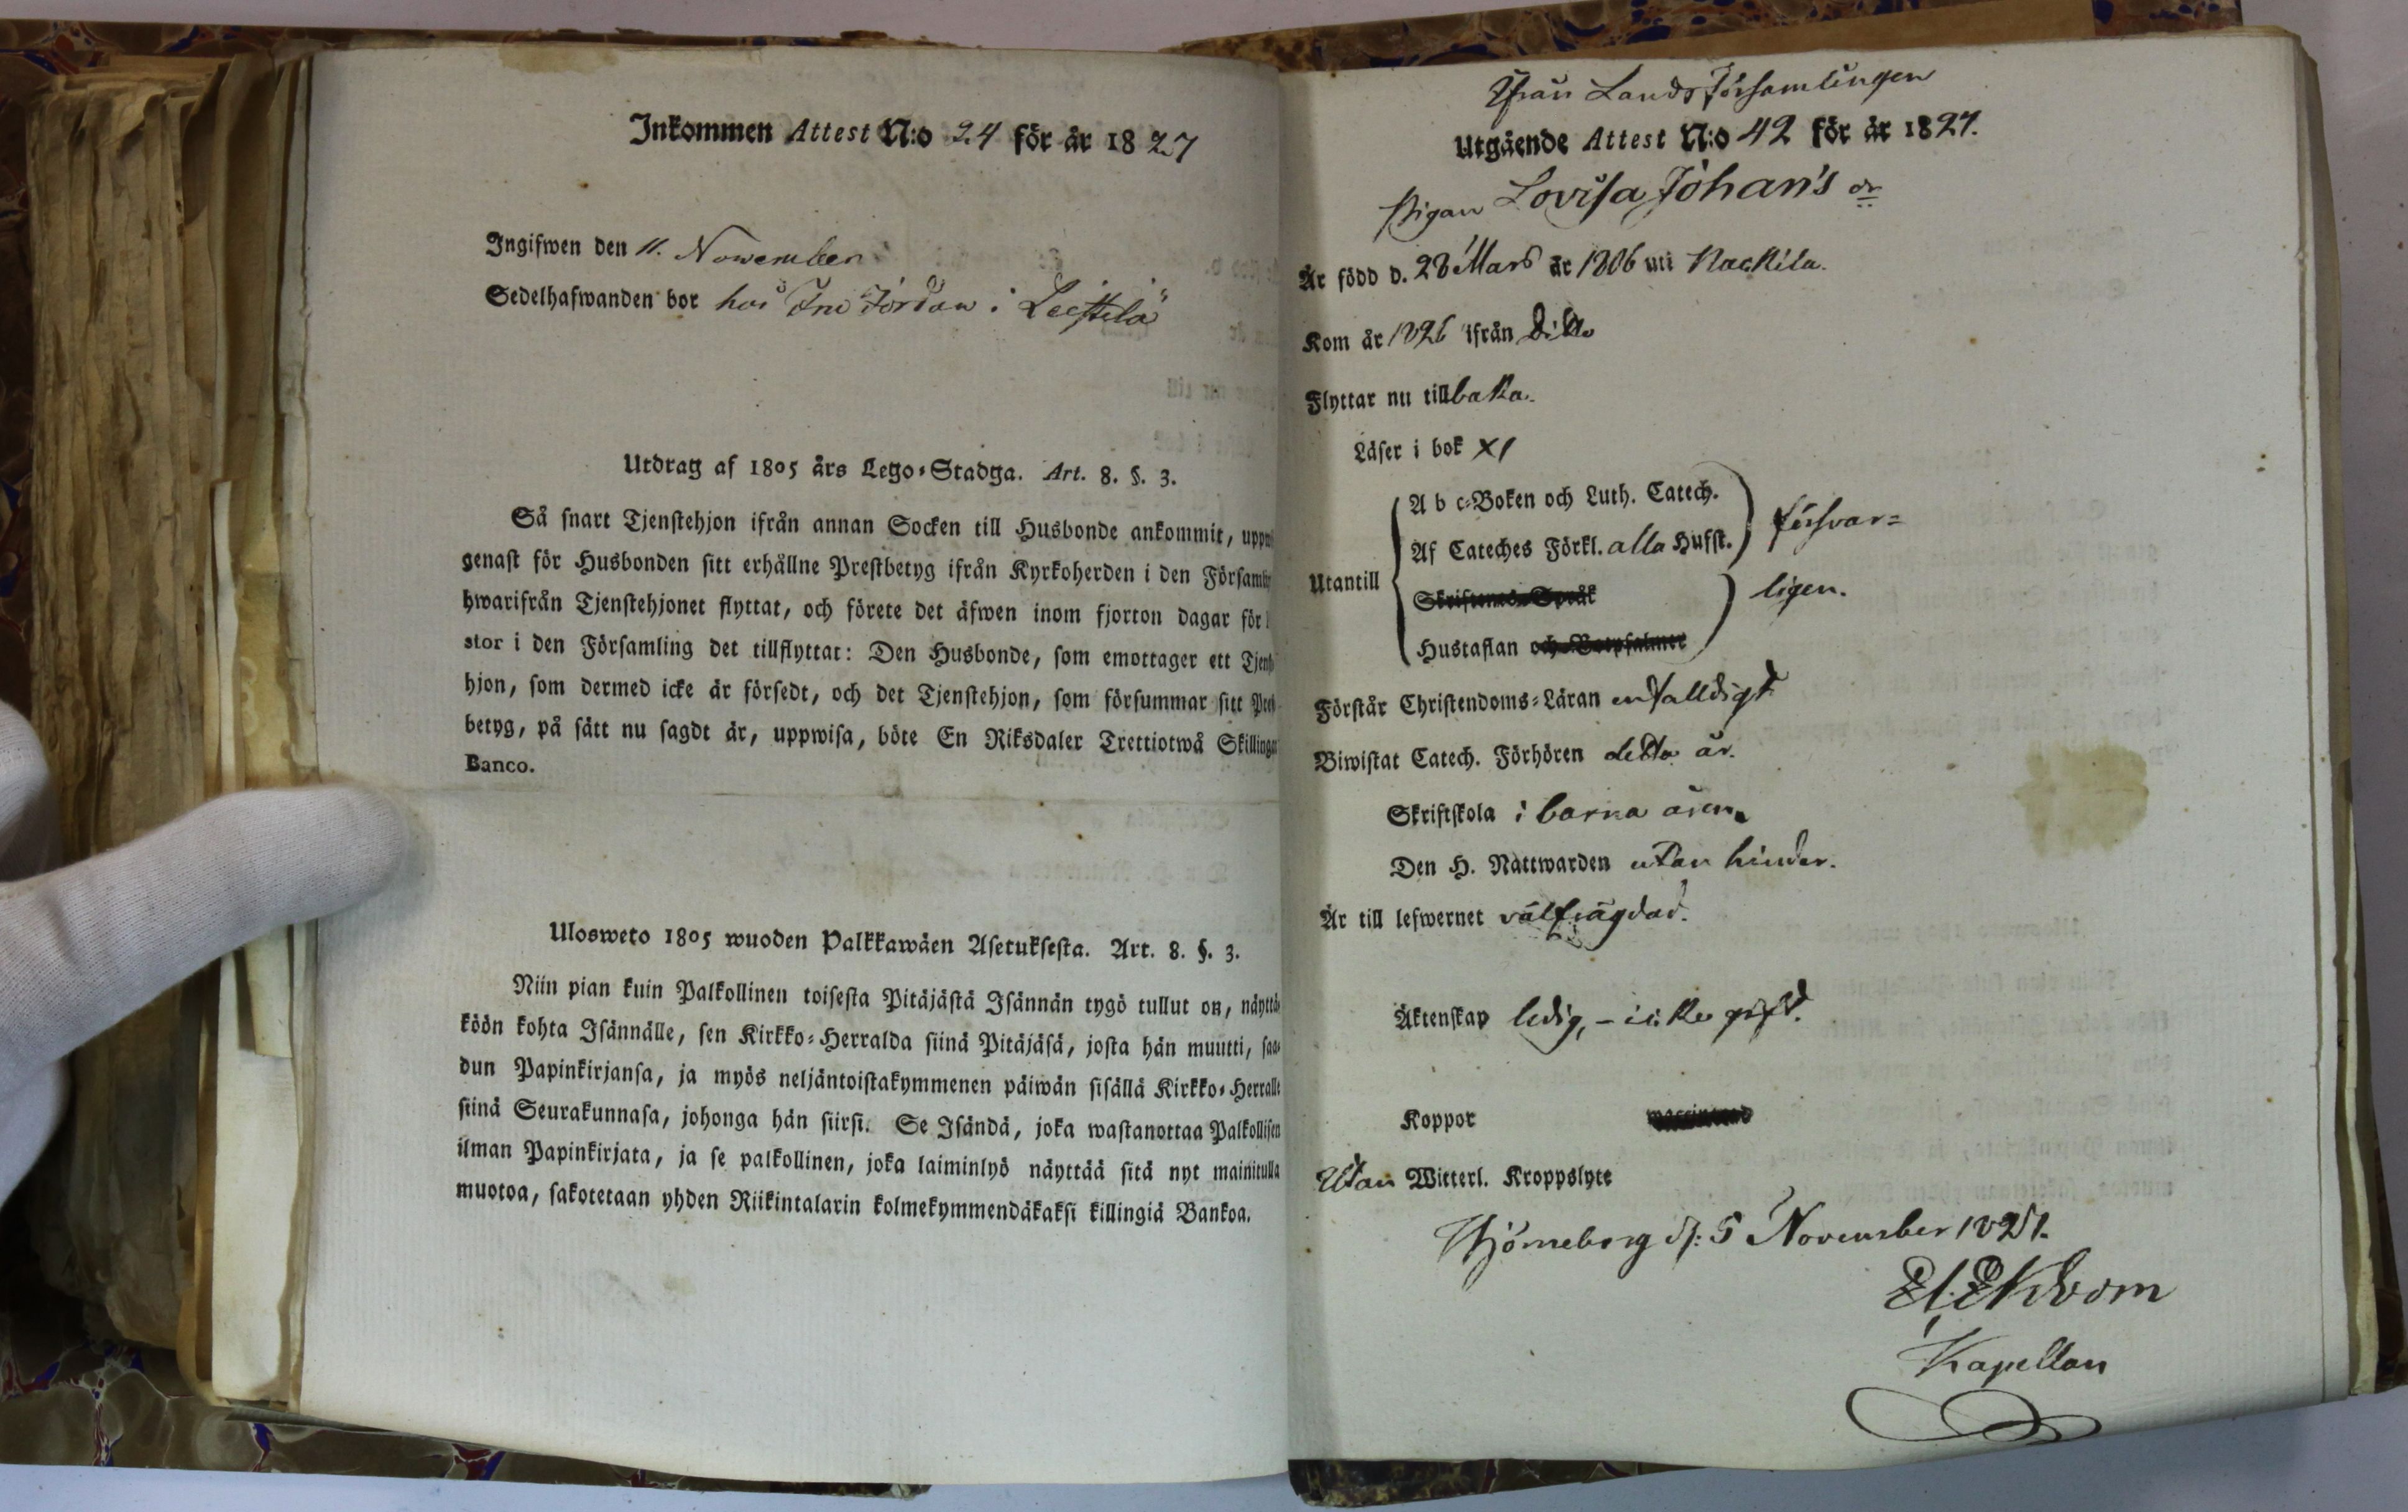 Inkommen Attest N:o 24 för år 1827
Ingifwen den 11. November
Sedelhafwanden bor hos Jordan i
Utdrag af 1805 års Lego-Stadga. Art. 8. §. 3.
Så snart Tjenstehjon ifrån annan Socken till Husbonde ankommit, uppwi
genast för Husbonden sitt erhållne Prestbetyg ifrån Kyrkoherden i den Församl
hwarifrån Tjenstehjonet flyttat, och förete det äfwen inom fjorton dagar för
stor i den Församling det tillflyttat: Den Husbonde, som emottager ett Tjenst
hjon, som dermed icke är försedt, och det Tjenstehjon, som försummar sitt Prest
betyg, på sätt nu sagdt är, uppwisa, böte En Riksdaler Trettiotwå Skillingar
Banco.
Ulosweto 1805 wuoden Palkkawäen Asetuksesta. Art. 8. §. 3.
Niin pian kuin Palkollinen toisesta Pitäjästä Isännän tygö tullut on, näyttä-
köön kohta Isännälle, sen Kirkko-Herralda siinä Pitäjäsä, josta hän muutti, saa-
dun Papinkirjansa, ja myös neljäntoistakymmenen päiwän sisällä Kirkko-Herralle
siinä Seurakunnasa, johonga hän siirsi. Se Isändä, joka wastanottaa Palkollisen
ilman Papinkirjata, ja se palkollinen, joka laiminlyö näyttää sitä nyt mainitulla
muotoa, sakotetaan yhden Riikintalarin kolmekymmendäkaksi killingiä Bankoa.
Från Lands Församlingen
Utgående Attest N:o 42 för år 1827.
Pigan Lovisa Johans dr
Är född d. 28 Mars år 1806 uti Nackila.
Kom år 1826 ifrån Ditto
Flyttar nu tillbaka.
Läser i bok XI
Utantill
A b c-Boken och Luth. Catech.
Af Cateches Förkl. alla Hufst.
försvar=
Skriftenes Språk
ligen.
Hustaflan och Botpsalmer
Förstår Christendoms-Läran enfalldigt
Biwistat Catech. Förhören detta år.
Skriftskola i barna åren.
Den H. Nattwarden utan hinder.
Är till lefwernet välfrägdad.
Äktenskap ledig, - icke gift.
Koppor
Utan Witterl. Kroppslyte
Björneborg d: 5 November 1827.
Ekbom
Kapellan